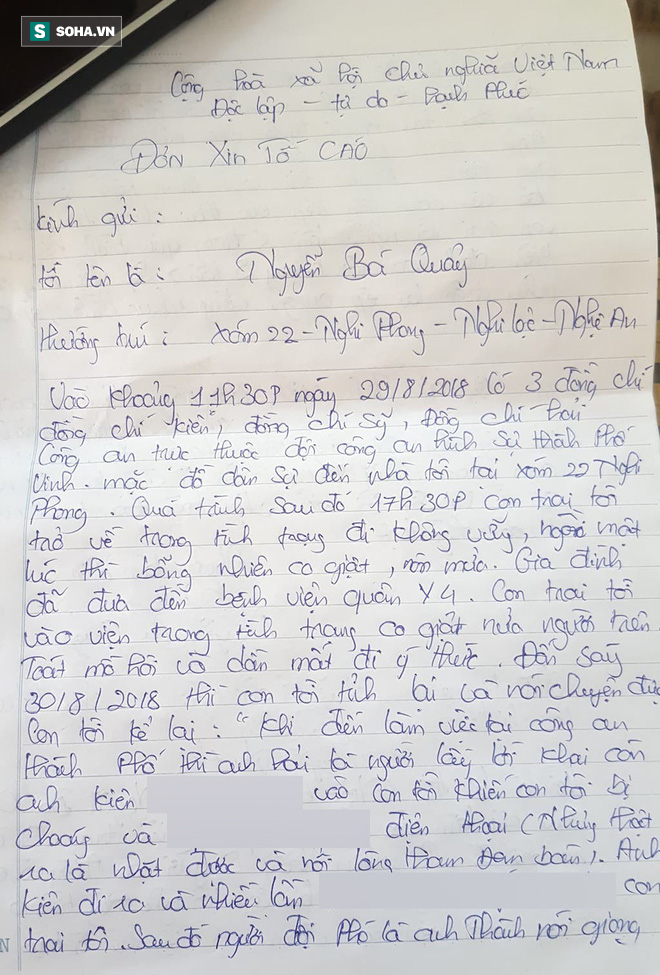 SOHA.VN
Cộng hoà xã hội chủ nghĩa Việt Nam
Độc lập - tự do - hạnh phúc
ĐƠN XIN TỐ CÁO
Kính gửi :
tôi tên là : Nguyễn Bá Quảy
thường trú : xóm 22 - Nghi Phong - Nghi Lộc - Nghệ An
Vào khoảng 11h30P ngày 29/8/2018 Có 3 đồng chí
đồng chí kiên, đồng chí Sỹ, đồng chí hải
Công an trực thuộc đội công an hình sự thành phố
Vinh. mặc đồ dân sự đến nhà tôi tại xóm 22 Nghi
Phong. Quá trình sau đó 17h30P con trai tôi
trở về trong tình trạng đi không vững, ngồi một
lúc thì bỗng nhiên co giật, nôn mửa. Gia đình
đã đưa đến bệnh viện quân Y4. Con trai tôi
vào viện trong tình trạng co giật nửa người trên
Toát mồ hôi và dần mất đi ý thức. Đến sáng
30/8/2018 thì con tôi tỉnh lại và nói chuyện được
Con tôi kể lại : "khi đến làm việc tại công an
thành phố thì anh hải là người lấy lời khai còn
anh kiên vào con tôi khiến con tôi bị
choáng và điện thoại (Nhưng thật
ra là nhặt được và nổi lòng tham đem bán). Anh
kiên đi ra và nhiều lần con
trai tôi. Sau đó người đội phó là anh Thành nói giọng